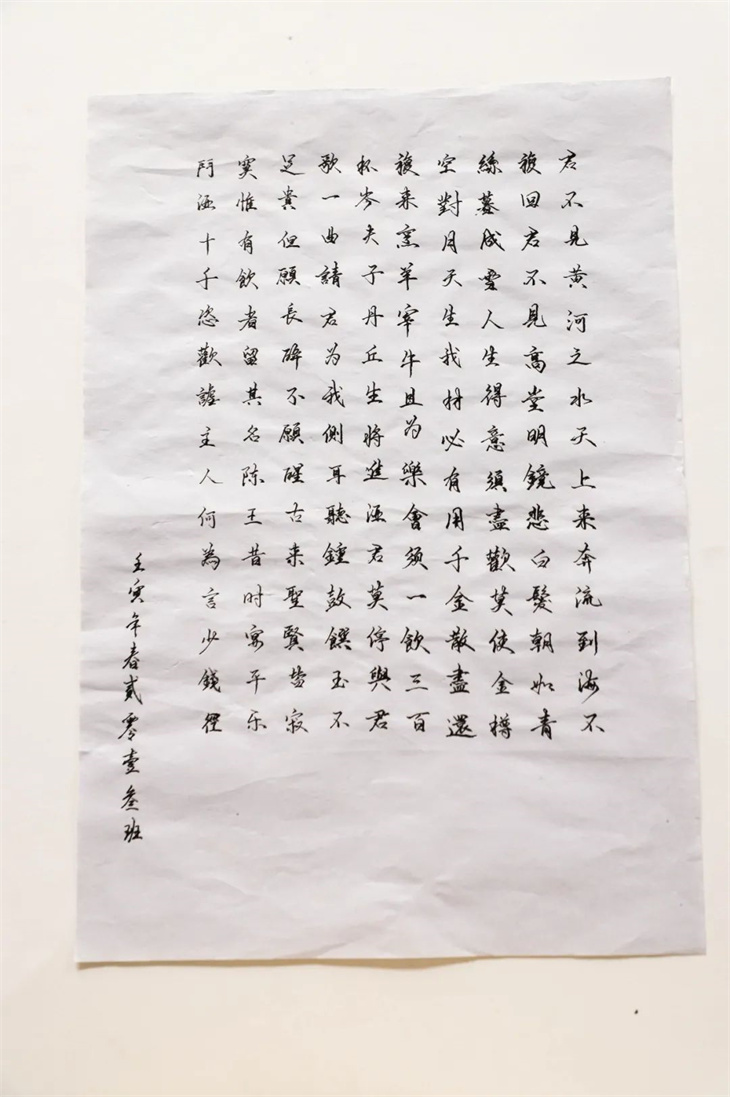 君不見黄河之水天上来奔流到海不
複回君不見高堂明鏡悲白髮朝如青
絲暮成雪人生得意須盡歡莫使金樽
空對月天生我材必有用千金散盡還
複来烹羊宰牛且为樂會須一飲三百
杯岑夫子丹丘生將進酒君莫停與君
歌一曲請君为我側耳聽鍾鼓饌玉不
足貴但願長醉不願醒古来聖賢皆寂
寞惟有飲者留其名陈王昔时宴平乐
鬥酒十千恣歡謔主人何為言少錢徑
壬寅年春貳零壹叁班